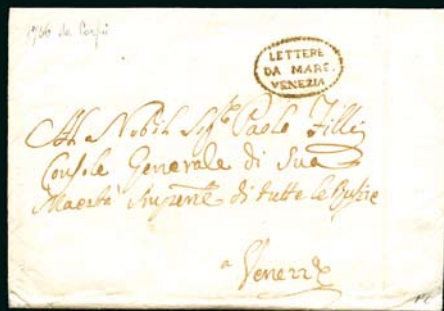 1786 da Corfù
LETTERE
DA MARE.
VENEZIA
Al Nobil Sig.r Paolo
Console Generale di Sua
Maestà di tutte le
a Venezia